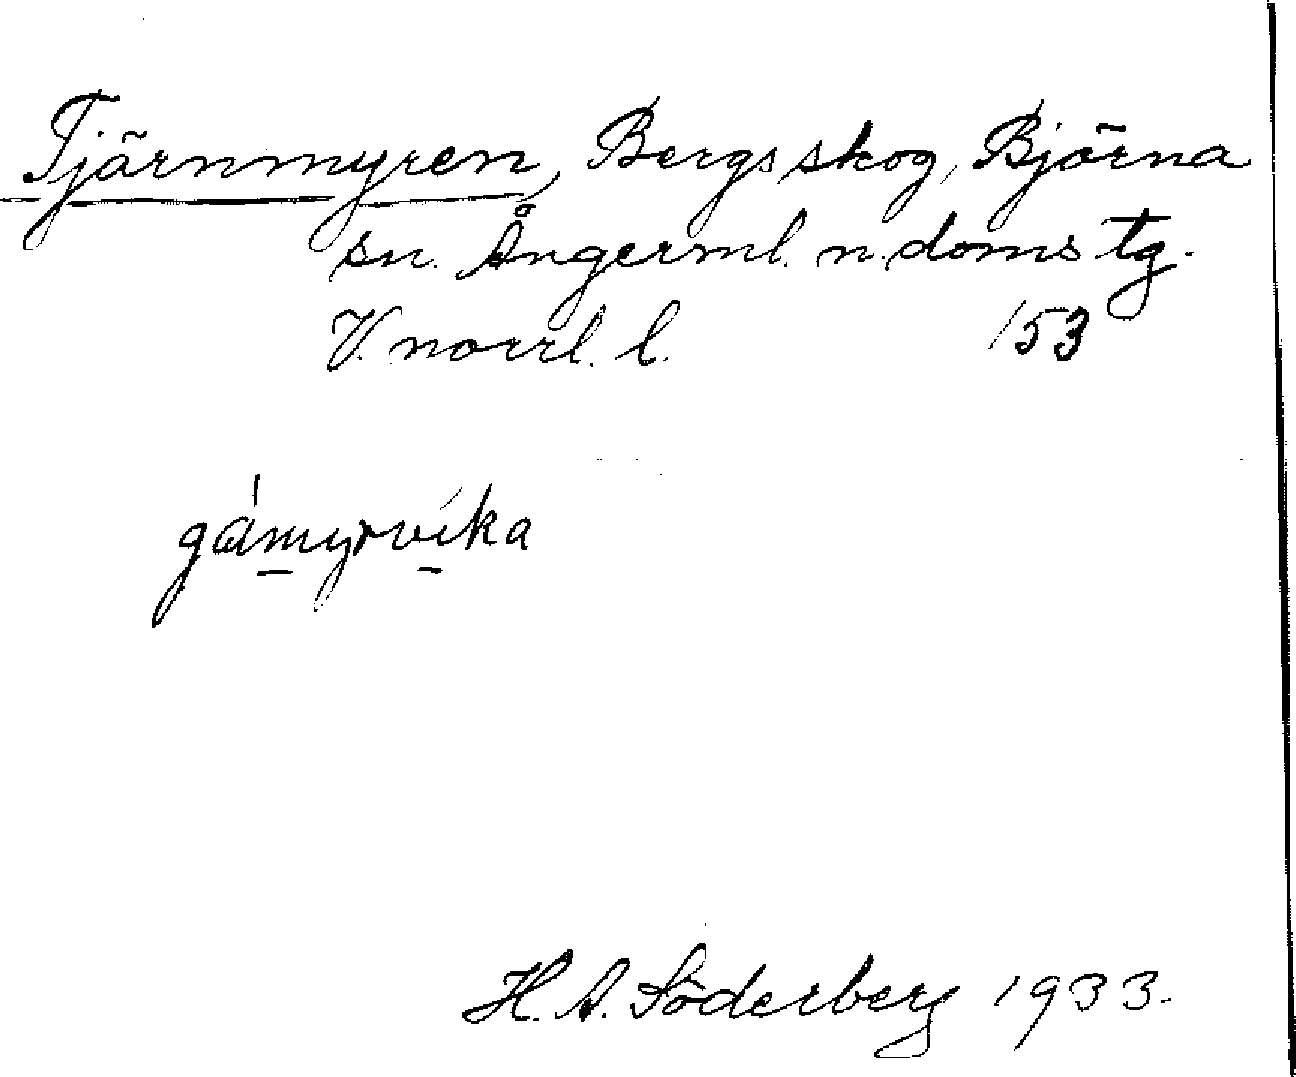 Tjärnmyren, Bergsskog, Björna
sn. Ångerml. n. doms tg.
V. norrl. l. 153
gåmyrvíka
H. A. Söderberg 1933.